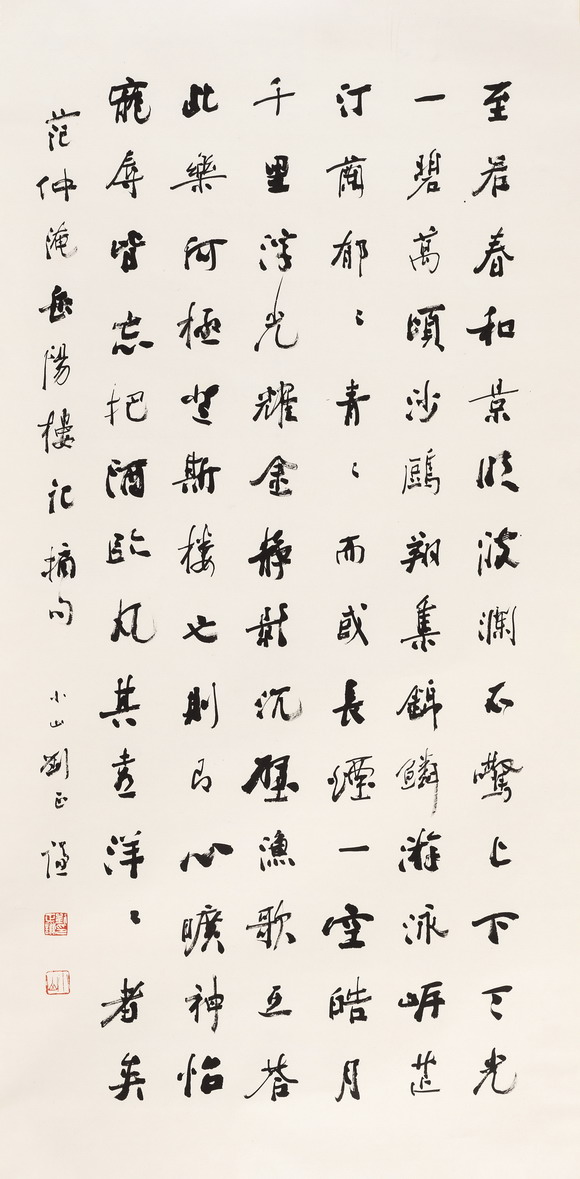 至若春和景明波瀾不驚上下天光
一碧萬頃沙鷗翔集錦鱗游泳岸芷
汀蘭郁〻青〻而或長煙一空皓月
千里浮光耀金靜影沉璧漁歌互答
此樂何極登斯楼也則有心曠神怡
寵辱皆忘把酒臨風其喜洋〻者矣
范仲淹岳陽樓記摘句 小山劉正